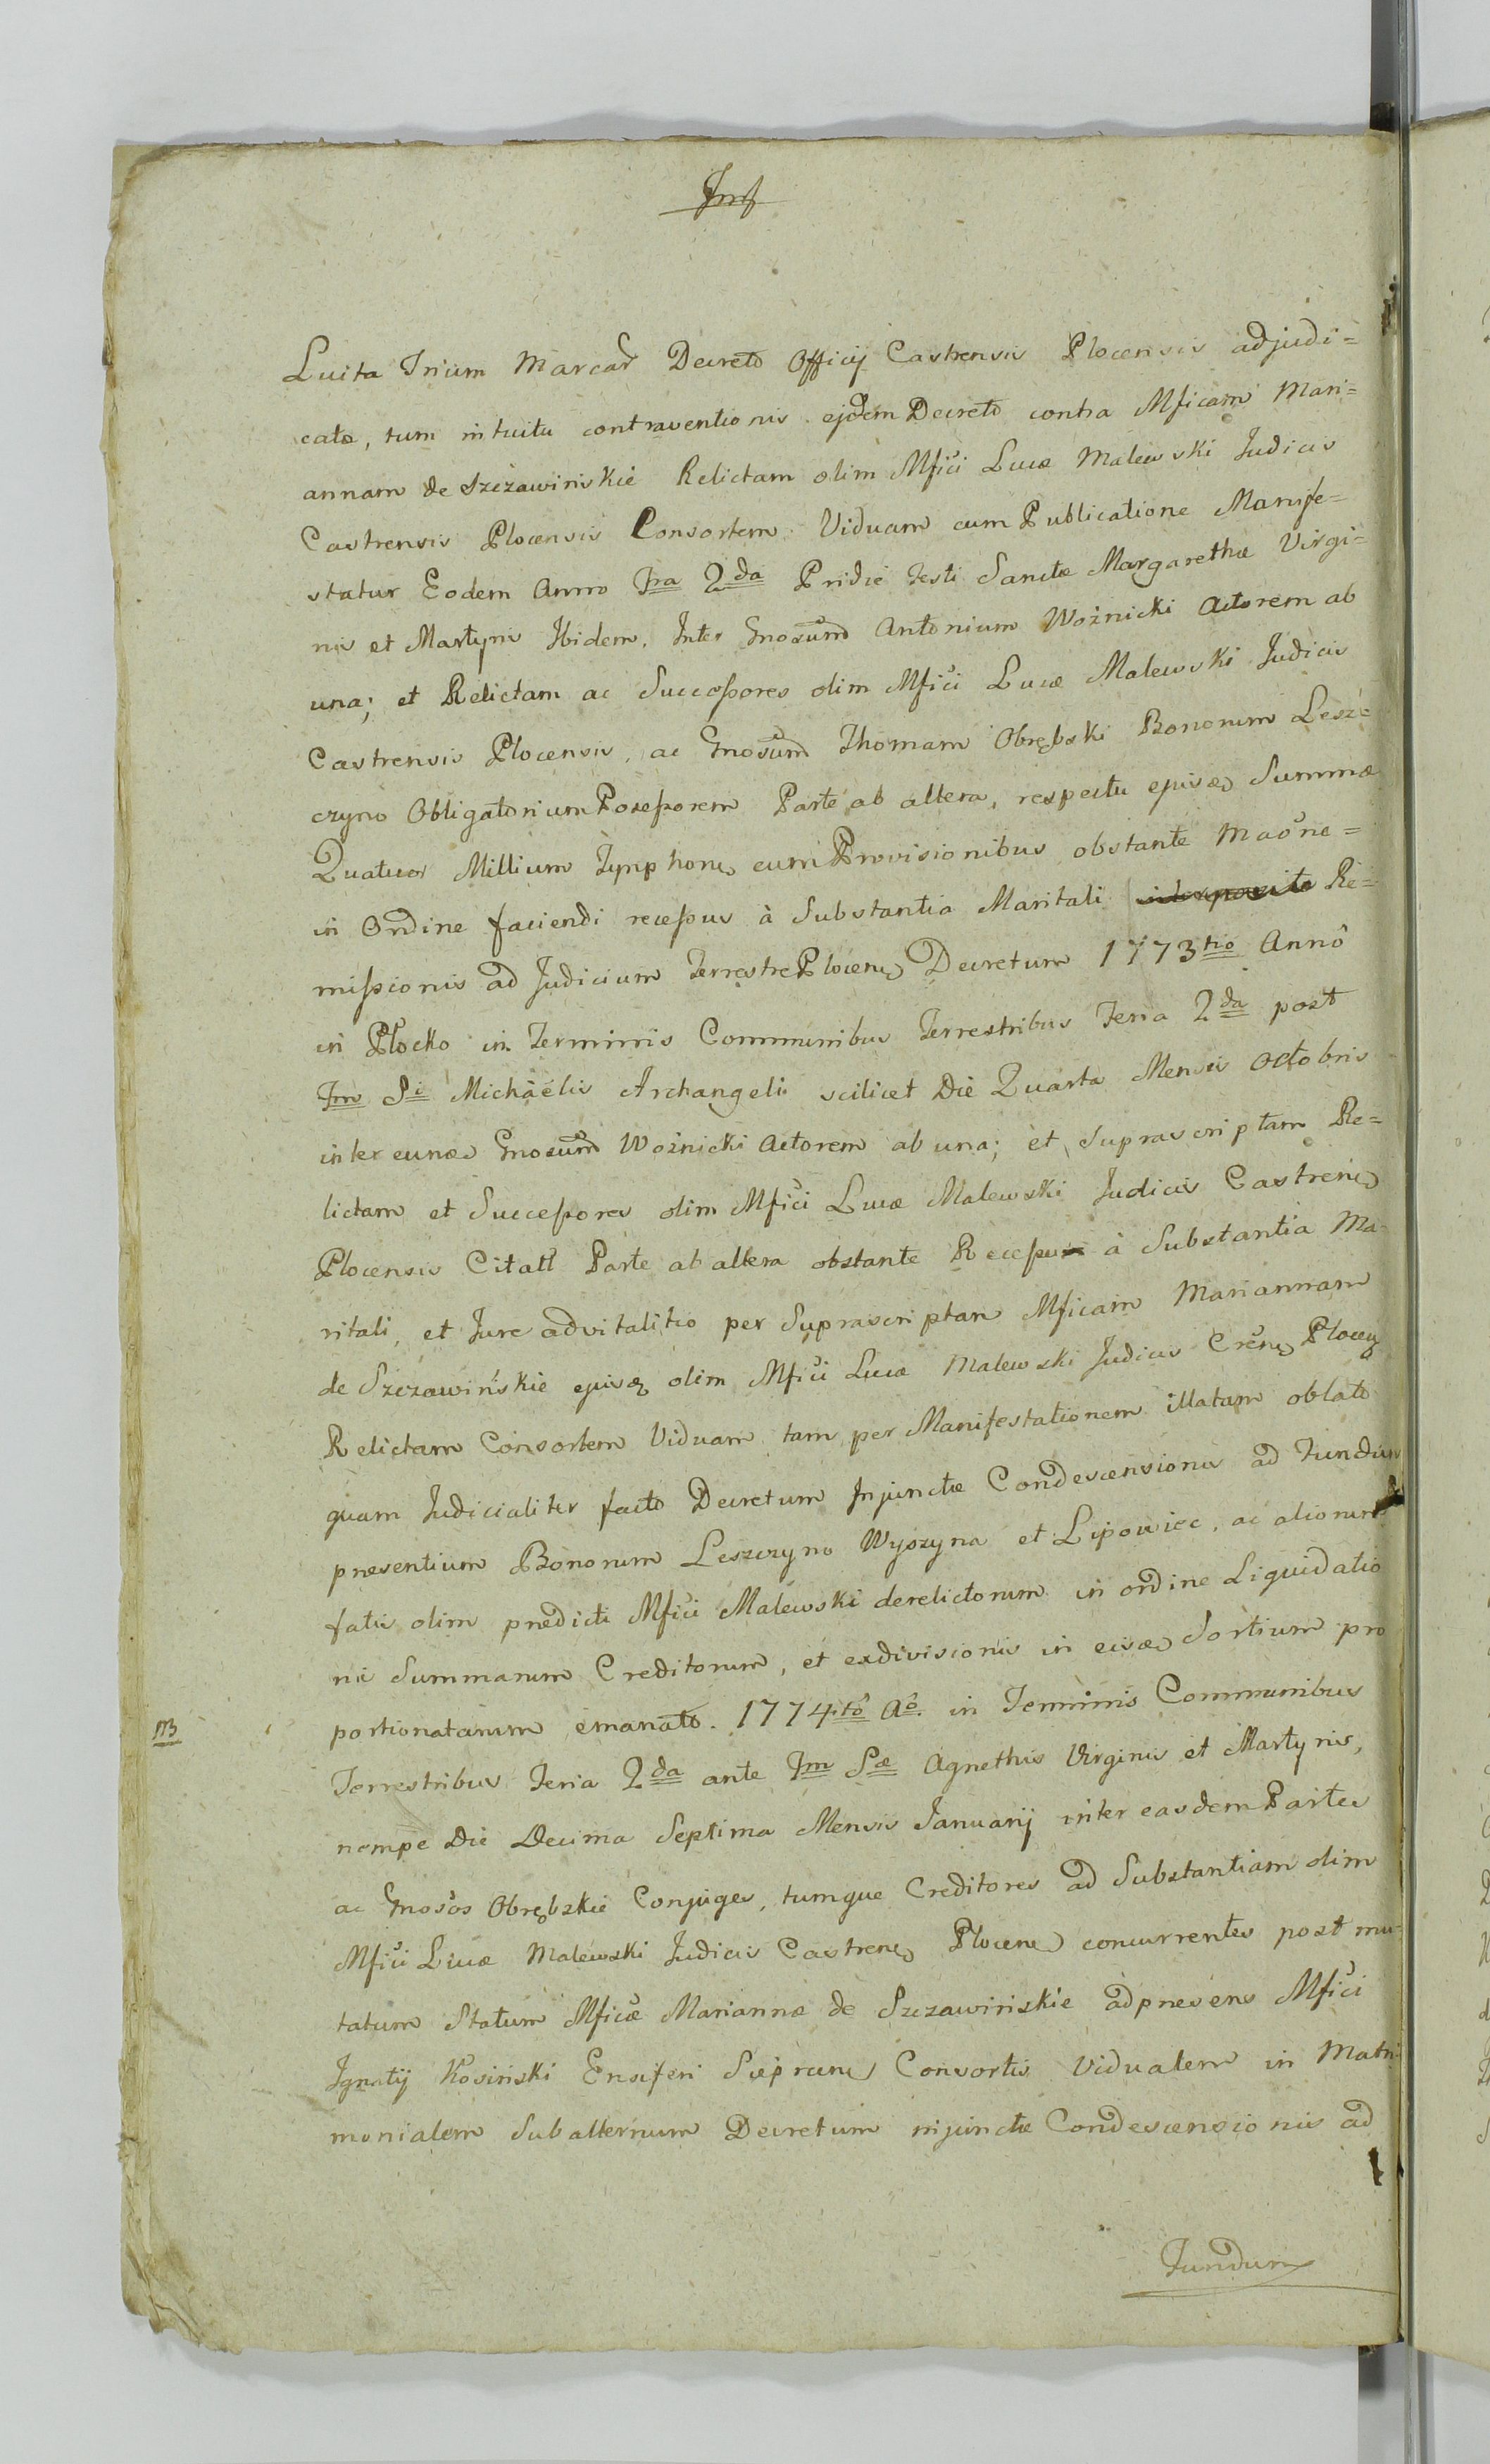 Luita Trium Marcar Decreto Officij Castrensis Plocensis adjudi=
cata, tum intuitu contraventionis ejdem Decreto contra Mficam Mari=
annam de Szczawinskie Relictam olim Mfici Lucæ Malewski Judicis
Castrensis Plocensis Consortem Viduam cum Publicatione Manife=
statur Eodem Anno Fra 2da Pridie Festi Sanctæ Margarethæ Virgi=
nis et Martyris Ibidem. Inter Gnosum Antonium Woźnicki Actorem ab
una; et Relictam ac Successores olim Mfici Lucæ Malewski Judicis
Castrensis Plocensis, ac Gnosum Thomam Obrębski Bonorum Lesz=
czyno Obligatorium Possessorem Parte ab altera, respectu ejusd Summæ
Quatuor Millium Tymphonu cum Provisionibus obstante Maõne=
in Ordine faciendi recessus à Substantia Maritali interposito Re=
missionis ad Judicium Terrestre Plocens Decretum 1773tio Annô
in Płocko in Terminis Communibus Terrestribus Feria 2da post
Fm Si Michaëlis Archangeli scilicet Die Quarta Mensis Octobris
inter eund Gnosum Woźnicki Actorem ab una; et Suprascriptam Re=
lictam et Successores olim Mfici Lucæ Malewski Judicis Castrens
Plocensis Citatt Parte ab altera obstante Recessu à Substantia Ma-
ritali, et Jure advitalitio per Suprascriptam Mficam Mariannam
de Szczawińskie ejusd olim Mfici Lucæ Malewski Judicis Crens Plocens
Relictam Consortem Viduam tam per Manifestationem illatam oblato
quam Judicialiter facto Decretum Injunctæ Condescensionis ad Fundum
presentium Bonorum Leszczyno Wyszyna et Lipowiec, ac aliorum
fatis olim predicti Mfici Malewski derelictorum in ordine Liquidatio
nis Summarum Creditorum, et exdivisionis in eisd Sortium pro
portionatarum emanato. 1774to Aõ. in Terminis Communibus
NB
Terrestribus Feria 2da ante Fm Sæ Agnethis Virginis et Martyris,
nempe Die Decima Septima Mensis Januarij inter easdem Partes
ac Gnosos Obrębskie Conjuges, tumque Creditores ad Substantiam olim
Mfici Lucæ Malewski Judicis Castrens Plocens concurrentes post mu-
tatum Statum Mficæ Mariannæ de Szczawińskie adpresens Mfici
Ignatij Kosiński Ensiferi Sieprcens Consortis Vidualem in Matri
monialem Subalternum Decretum injunctæ Condescensionis ad
Fundum